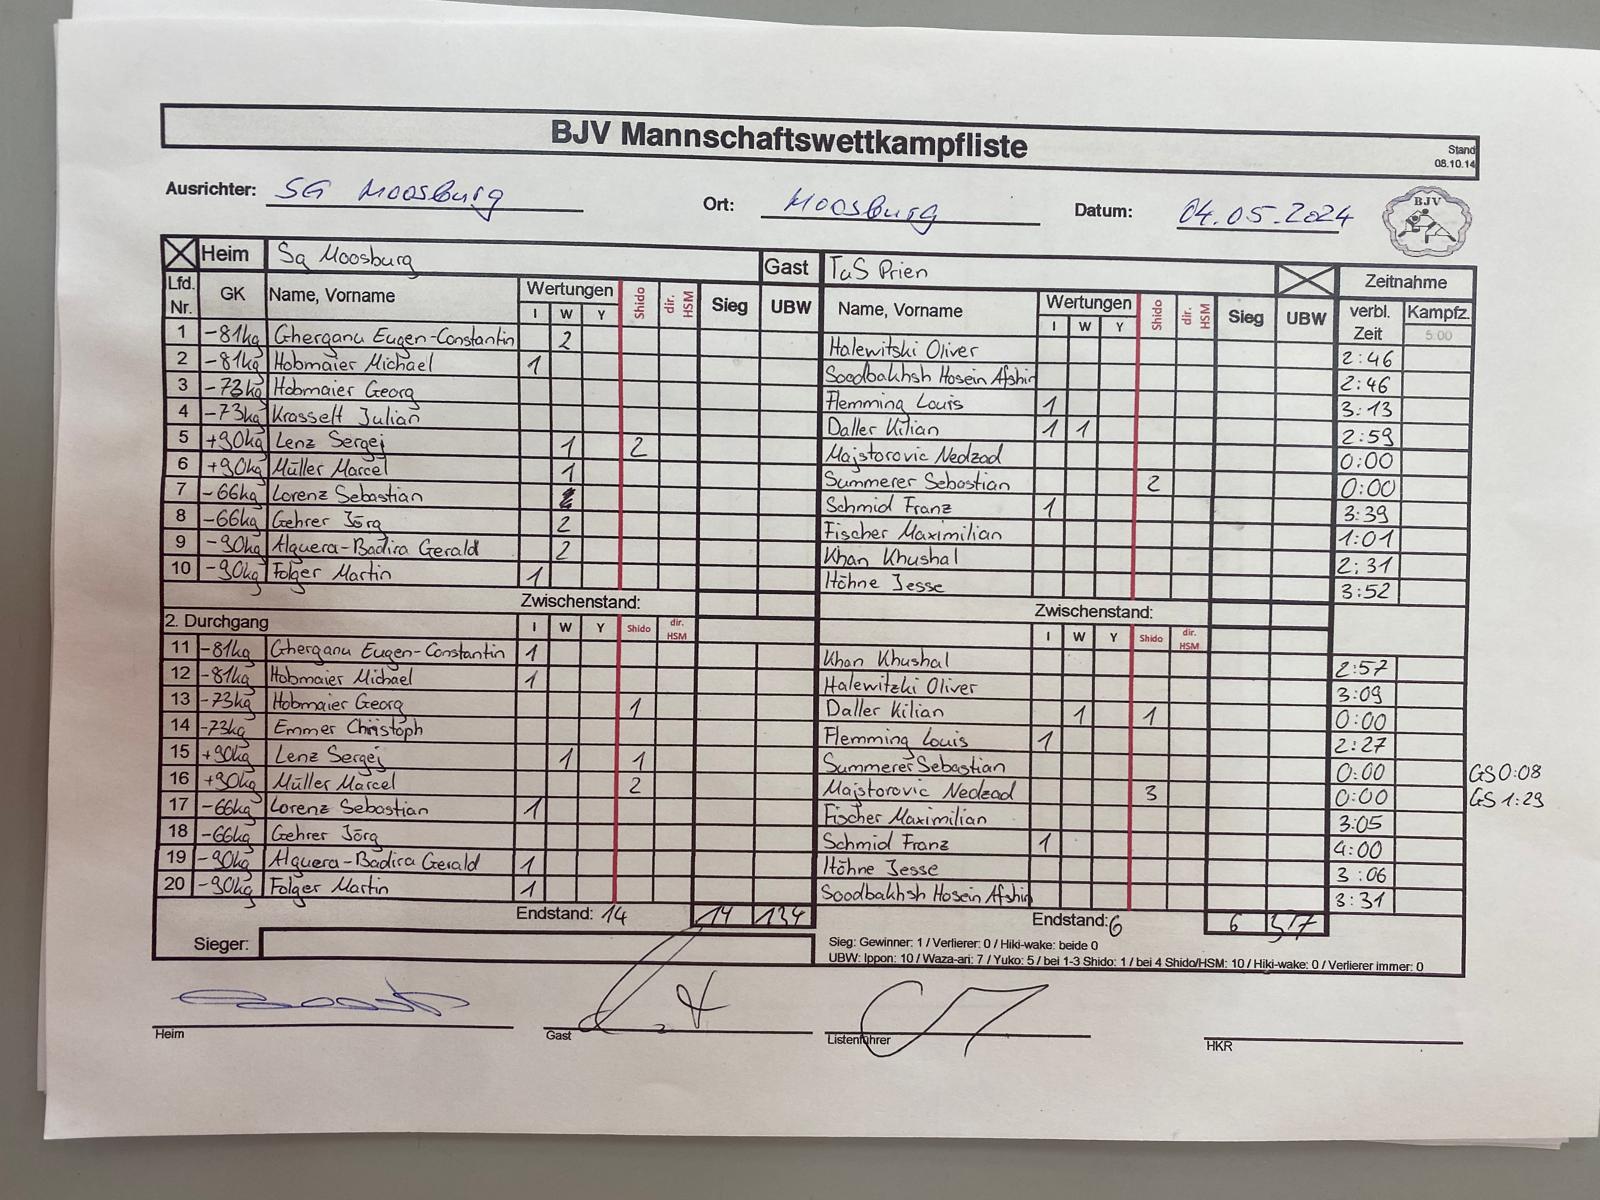 BJV Mannschaftswettkampfliste
Stand 08.10.14
Ausrichter: SG Moosburg Ort: Moosburg Datum: 04.05.2024
BJV
Heim Sg Moosburg Gast TuS Prien Zeitnahme
Lfd. Nr. GK Name, Vorname Wertungen I W Y Shido dir. HSM Sieg UBW Name, Vorname Wertungen I W Y Shido dir. HSM Sieg UBW verbl. Zeit Kampfz. 5:00
1 -81kg Gherganu Eugen-Constantin 2 Halewitski Oliver 2:46
2 -81kg Hobmaier Michael 1 Soodbakhsh Hosein Afshin 2:46
3 -73kg Hobmaier Georg Flemming Louis 1 3:13
4 -73kg Krasselt Julian Daller Kilian 1 1 2:59
5 +90kg Lenz Sergej 1 2 Majstorovic Nedzad 0:00
6 +90kg Müller Marcel 1 Summerer Sebastian 2 0:00
7 -66kg Lorenz Sebastian Schmid Franz 1 3:39
8 -66kg Gehrer Jörg 2 Fischer Maximilian 1:01
9 -90kg Alguera-Badira Gerald 2 Khan Khushal 2:31
10 -90kg Folger Martin 1 Höhne Jesse 3:52
Zwischenstand: Zwischenstand:
2. Durchgang I W Y Shido dir. HSM I W Y Shido dir. HSM
11 -81kg Gherganu Eugen-Constantin 1 Khan Khushal 2:57
12 -81kg Hobmaier Michael 1 Halewitzki Oliver 3:09
13 -73kg Hobmaier Georg 1 Daller Kilian 1 1 0:00
14 -73kg Emmer Christoph Flemming Louis 1 2:27
15 +90kg Lenz Sergej 1 1 Summerer Sebastian 0:00 GS 0:08
16 +90kg Müller Marcel 2 Majstorovic Nedzad 3 0:00 GS 1:29
17 -66kg Lorenz Sebastian 1 Fischer Maximilian 3:05
18 -66kg Gehrer Jörg Schmid Franz 1 4:00
19 -90kg Alguera-Badira Gerald 1 Höhne Jesse 3:06
20 -90kg Folger Martin 1 Soodbakhsh Hosein Afshin 3:31
Endstand: 14 14 134 Endstand: 6 6 57
Sieger:
Sieg: Gewinner: 1 / Verlierer: 0 / Hiki-wake: beide 0
UBW: Ippon: 10 / Waza-ari: 7 / Yuko: 5 / bei 1-3 Shido: 1 / bei 4 Shido/HSM: 10 / Hiki-wake: 0 / Verlierer immer: 0
Heim Gast Listenführer HKR